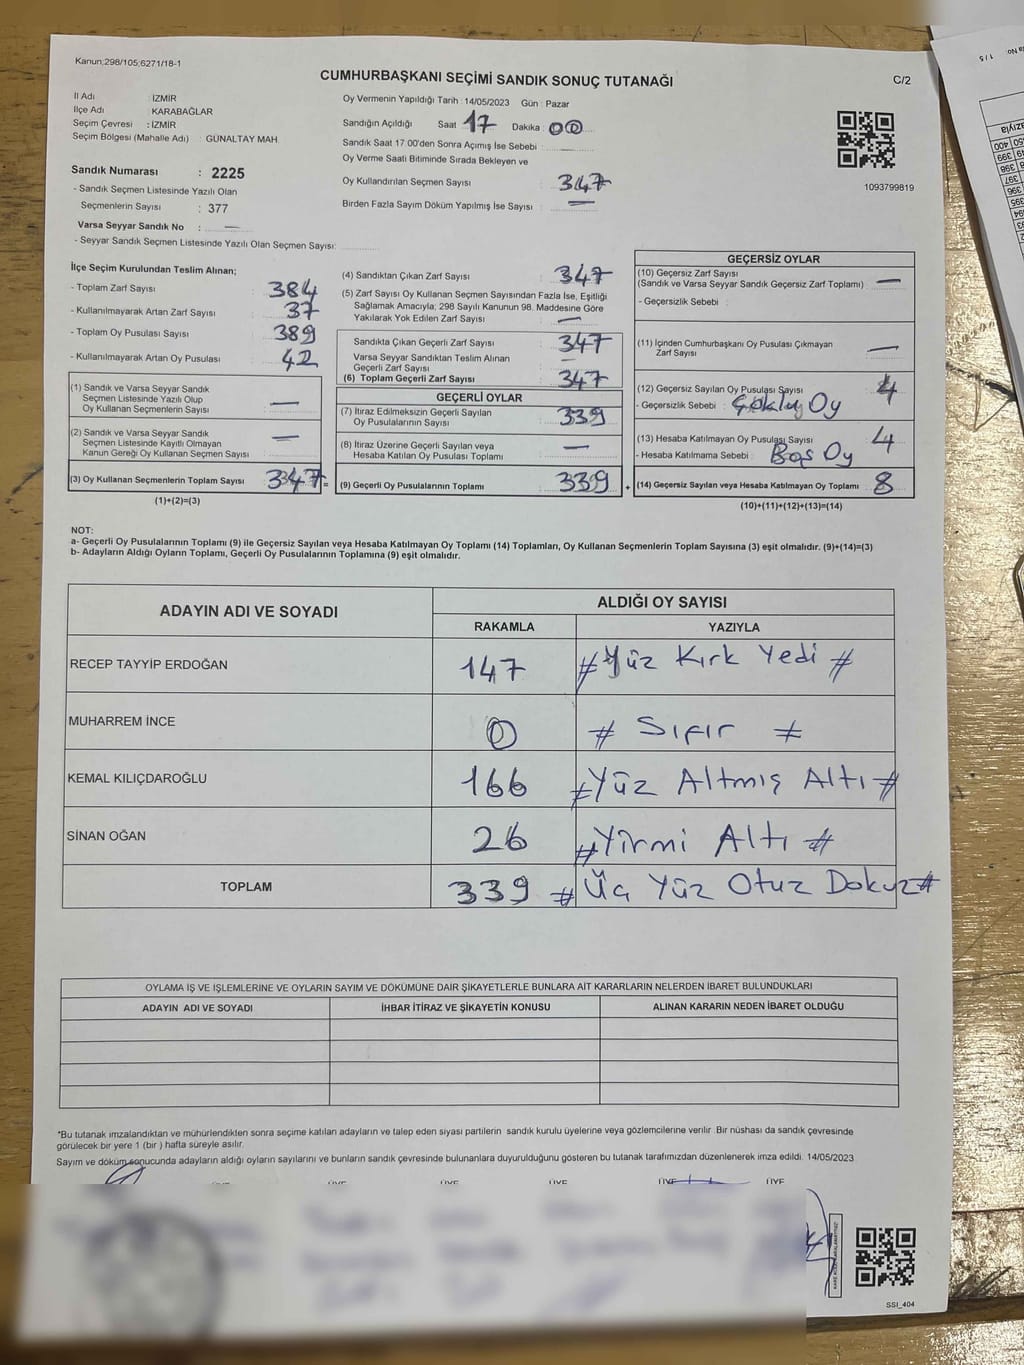 Kanun;298/105;6271/18-1
CUMHURBAŞKANI SEÇİMİ SANDIK SONUÇ TUTANAĞI
C/2
İl Adı : İZMİR
İlçe Adı : KARABAĞLAR
Seçim Çevresi : İZMİR
Seçim Bölgesi (Mahalle Adı) : GÜNALTAY MAH
Sandık Numarası : 2225
- Sandık Seçmen Listesinde Yazılı Olan
Seçmenlerin Sayısı : 377
Varsa Seyyar Sandık No : —
- Seyyar Sandık Seçmen Listesinde Yazılı Olan Seçmen Sayısı:
Oy Vermenin Yapıldığı Tarih :14/05/2023 Gün : Pazar
Sandığın Açıldığı Saat 17 Dakika : 00
Sandık Saat 17.00'den Sonra Açımış İse Sebebi : —
Oy Verme Saati Bitiminde Sırada Bekleyen ve
Oy Kullandırılan Seçmen Sayısı : 347
Birden Fazla Sayım Döküm Yapılmış İse Sayısı : —
1093799819
İlçe Seçim Kurulundan Teslim Alınan;
- Toplam Zarf Sayısı : 384
- Kullanılmayarak Artan Zarf Sayısı : 37
- Toplam Oy Pusulası Sayısı : 389
- Kullanılmayarak Artan Oy Pusulası : 42
(1) Sandık ve Varsa Seyyar Sandık
Seçmen Listesinde Yazılı Olup
Oy Kullanan Seçmenlerin Sayısı : —
(2) Sandık ve Varsa Seyyar Sandık
Seçmen Listesinde Kayıtlı Olmayan
Kanun Gereği Oy Kullanan Seçmen Sayısı : —
(3) Oy Kullanan Seçmenlerin Toplam Sayısı : 347 =
(1)+(2)=(3)
(4) Sandıktan Çıkan Zarf Sayısı : 347
(5) Zarf Sayısı Oy Kullanan Seçmen Sayısından Fazla İse, Eşitliği
Sağlamak Amacıyla; 298 Sayılı Kanunun 98. Maddesine Göre
Yakılarak Yok Edilen Zarf Sayısı : —
Sandıkta Çıkan Geçerli Zarf Sayısı : 347
Varsa Seyyar Sandıktan Teslim Alınan
Geçerli Zarf Sayısı : —
(6) Toplam Geçerli Zarf Sayısı : 347
GEÇERLİ OYLAR
(7) İtiraz Edilmeksizin Geçerli Sayılan
Oy Pusulalarının Sayısı : 339
(8) İtiraz Üzerine Geçerli Sayılan veya
Hesaba Katılan Oy Pusulası Toplamı : —
(9) Geçerli Oy Pusulalarının Toplamı : 339 +
GEÇERSİZ OYLAR
(10) Geçersiz Zarf Sayısı
(Sandık ve Varsa Seyyar Sandık Geçersiz Zarf Toplamı) : —
- Geçersizlik Sebebi :
(11) İçinden Cumhurbaşkanı Oy Pusulası Çıkmayan
Zarf Sayısı : —
(12) Geçersiz Sayılan Oy Pusulası Sayısı : 4
- Geçersizlik Sebebi : Çoklu Oy
(13) Hesaba Katılmayan Oy Pusulası Sayısı : 4
- Hesaba Katılmama Sebebi : Boş Oy
(14) Geçersiz Sayılan veya Hesaba Katılmayan Oy Toplamı : 8
(10)+(11)+(12)+(13)=(14)
NOT:
a- Geçerli Oy Pusulalarının Toplamı (9) ile Geçersiz Sayılan veya Hesaba Katılmayan Oy Toplamı (14) Toplamları, Oy Kullanan Seçmenlerin Toplam Sayısına (3) eşit olmalıdır. (9)+(14)=(3)
b- Adayların Aldığı Oyların Toplamı, Geçerli Oy Pusulalarının Toplamına (9) eşit olmalıdır.
ADAYIN ADI VE SOYADI
ALDIĞI OY SAYISI
RAKAMLA YAZIYLA
RECEP TAYYİP ERDOĞAN 147 # Yüz Kırk Yedi #
MUHARREM İNCE 0 # Sıfır #
KEMAL KILIÇDAROĞLU 166 # Yüz Altmış Altı #
SİNAN OĞAN 26 # Yirmi Altı #
TOPLAM 339 # Üç Yüz Otuz Dokuz #
OYLAMA İŞ VE İŞLEMLERİNE VE OYLARIN SAYIM VE DÖKÜMÜNE DAİR ŞİKAYETLERLE BUNLARA AİT KARARLARIN NELERDEN İBARET BULUNDUKLARI
ADAYIN ADI VE SOYADI İHBAR İTİRAZ VE ŞİKAYETİN KONUSU ALINAN KARARIN NEDEN İBARET OLDUĞU
*Bu tutanak imzalandıktan ve mühürlendikten sonra seçime katılan adayların ve talep eden siyasi partilerin sandık kurulu üyelerine veya gözlemcilerine verilir. Bir nüshası da sandık çevresinde
görülecek bir yere 1 (bir ) hafta süreyle asılır.
Sayım ve döküm sonucunda adayların aldığı oyların sayılarını ve bunların sandık çevresinde bulunanlara duyurulduğunu gösteren bu tutanak tarafımızdan düzenlenerek imza edildi. 14/05/2023
ÜYE ÜYE ÜYE ÜYE ÜYE ÜYE
SSI_404